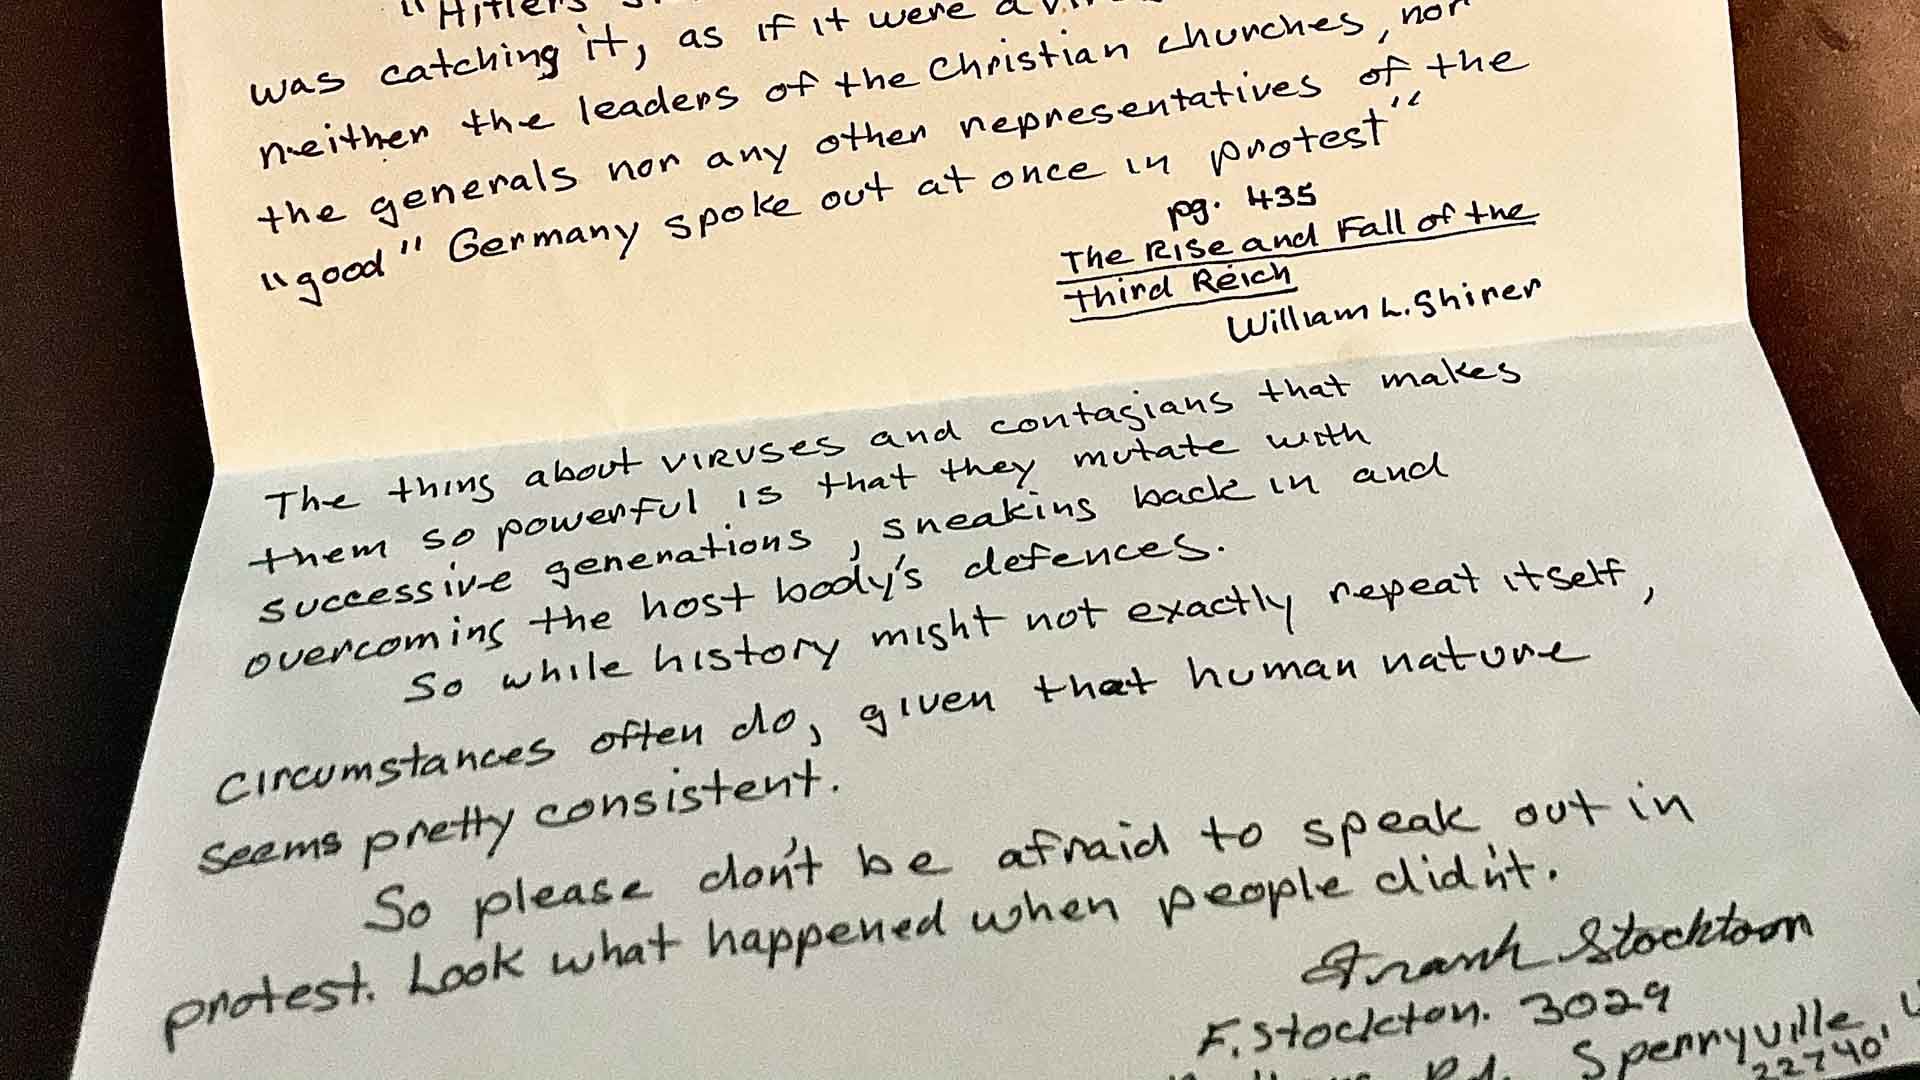 "Hitlers
was catching it, as if it were a
neither the leaders of the Christian churches, nor
the generals nor any other representatives of the
"good" Germany spoke out at once in protest"
pg. 435
The Rise and Fall of the
Third Reich
William L. Shirer
The thing about viruses and contagians that makes
them so powerful is that they mutate with
successive generations, sneaking back in and
overcoming the host body's defences.
So while history might not exactly repeat itself,
circumstances often do, given that human nature
seems pretty consistent.
So please don't be afraid to speak out in
protest. Look what happened when people didn't.
Frank Stockton
F. Stockton. 3029
Rd. Sperryville,
22740